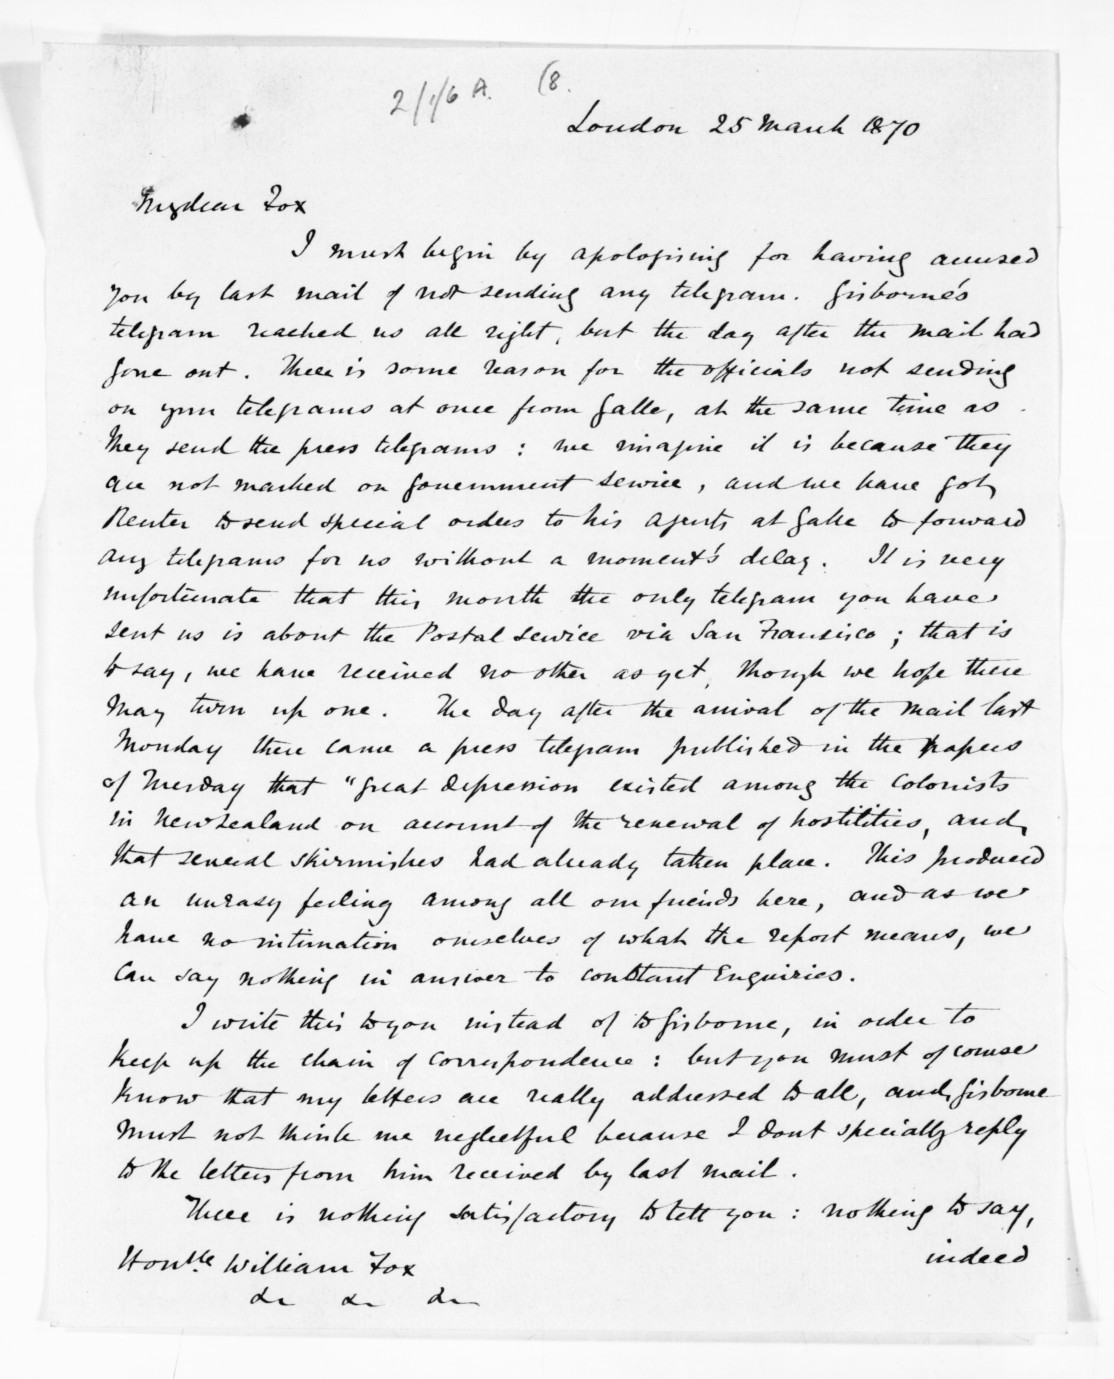 2/1/6 A. (8.
London 25 March 1870
My dear Fox
I must begin by apologising for having accused
you by last mail of not sending any telegram. Gisborne's
telegram reached us all right, but the day after the mail had
gone out. There is some reason for the officials not sending
on your telegrams at once from Galle, at the same time as
they send the press telegrams: we imagine it is because they
are not marked on Government Service, and we have got
Reuter to send special orders to his agents at Galle to forward
any telegrams for us without a moment's delay. It is very
unfortunate that this month the only telegram you have
sent us is about the Postal Service via San Fransisco; that is
to say, we have received no other as yet, though we hope there
may turn up one. The day after the arrival of the mail last
Monday there came a press telegram published in the papers
of Tuesday that "great depression existed among the Colonists
in New Zealand on account of the renewal of hostilities, and
that several skirmishes had already taken place. This produced
an uneasy feeling among all our friends here, and as we
have no intimation ourselves of what the report means, we
can say nothing in answer to constant Enquiries.
I write this to you instead of to Gisborne, in order to
keep up the chain of correspondence: but you must of course
know that my letters are really addressed to all, and Gisborne
must not think me neglectful because I dont specially reply
to the letters from him received by last mail.
There is nothing satisfactory to tell you: nothing to say,
indeed
Honble William Fox
&c &c &c